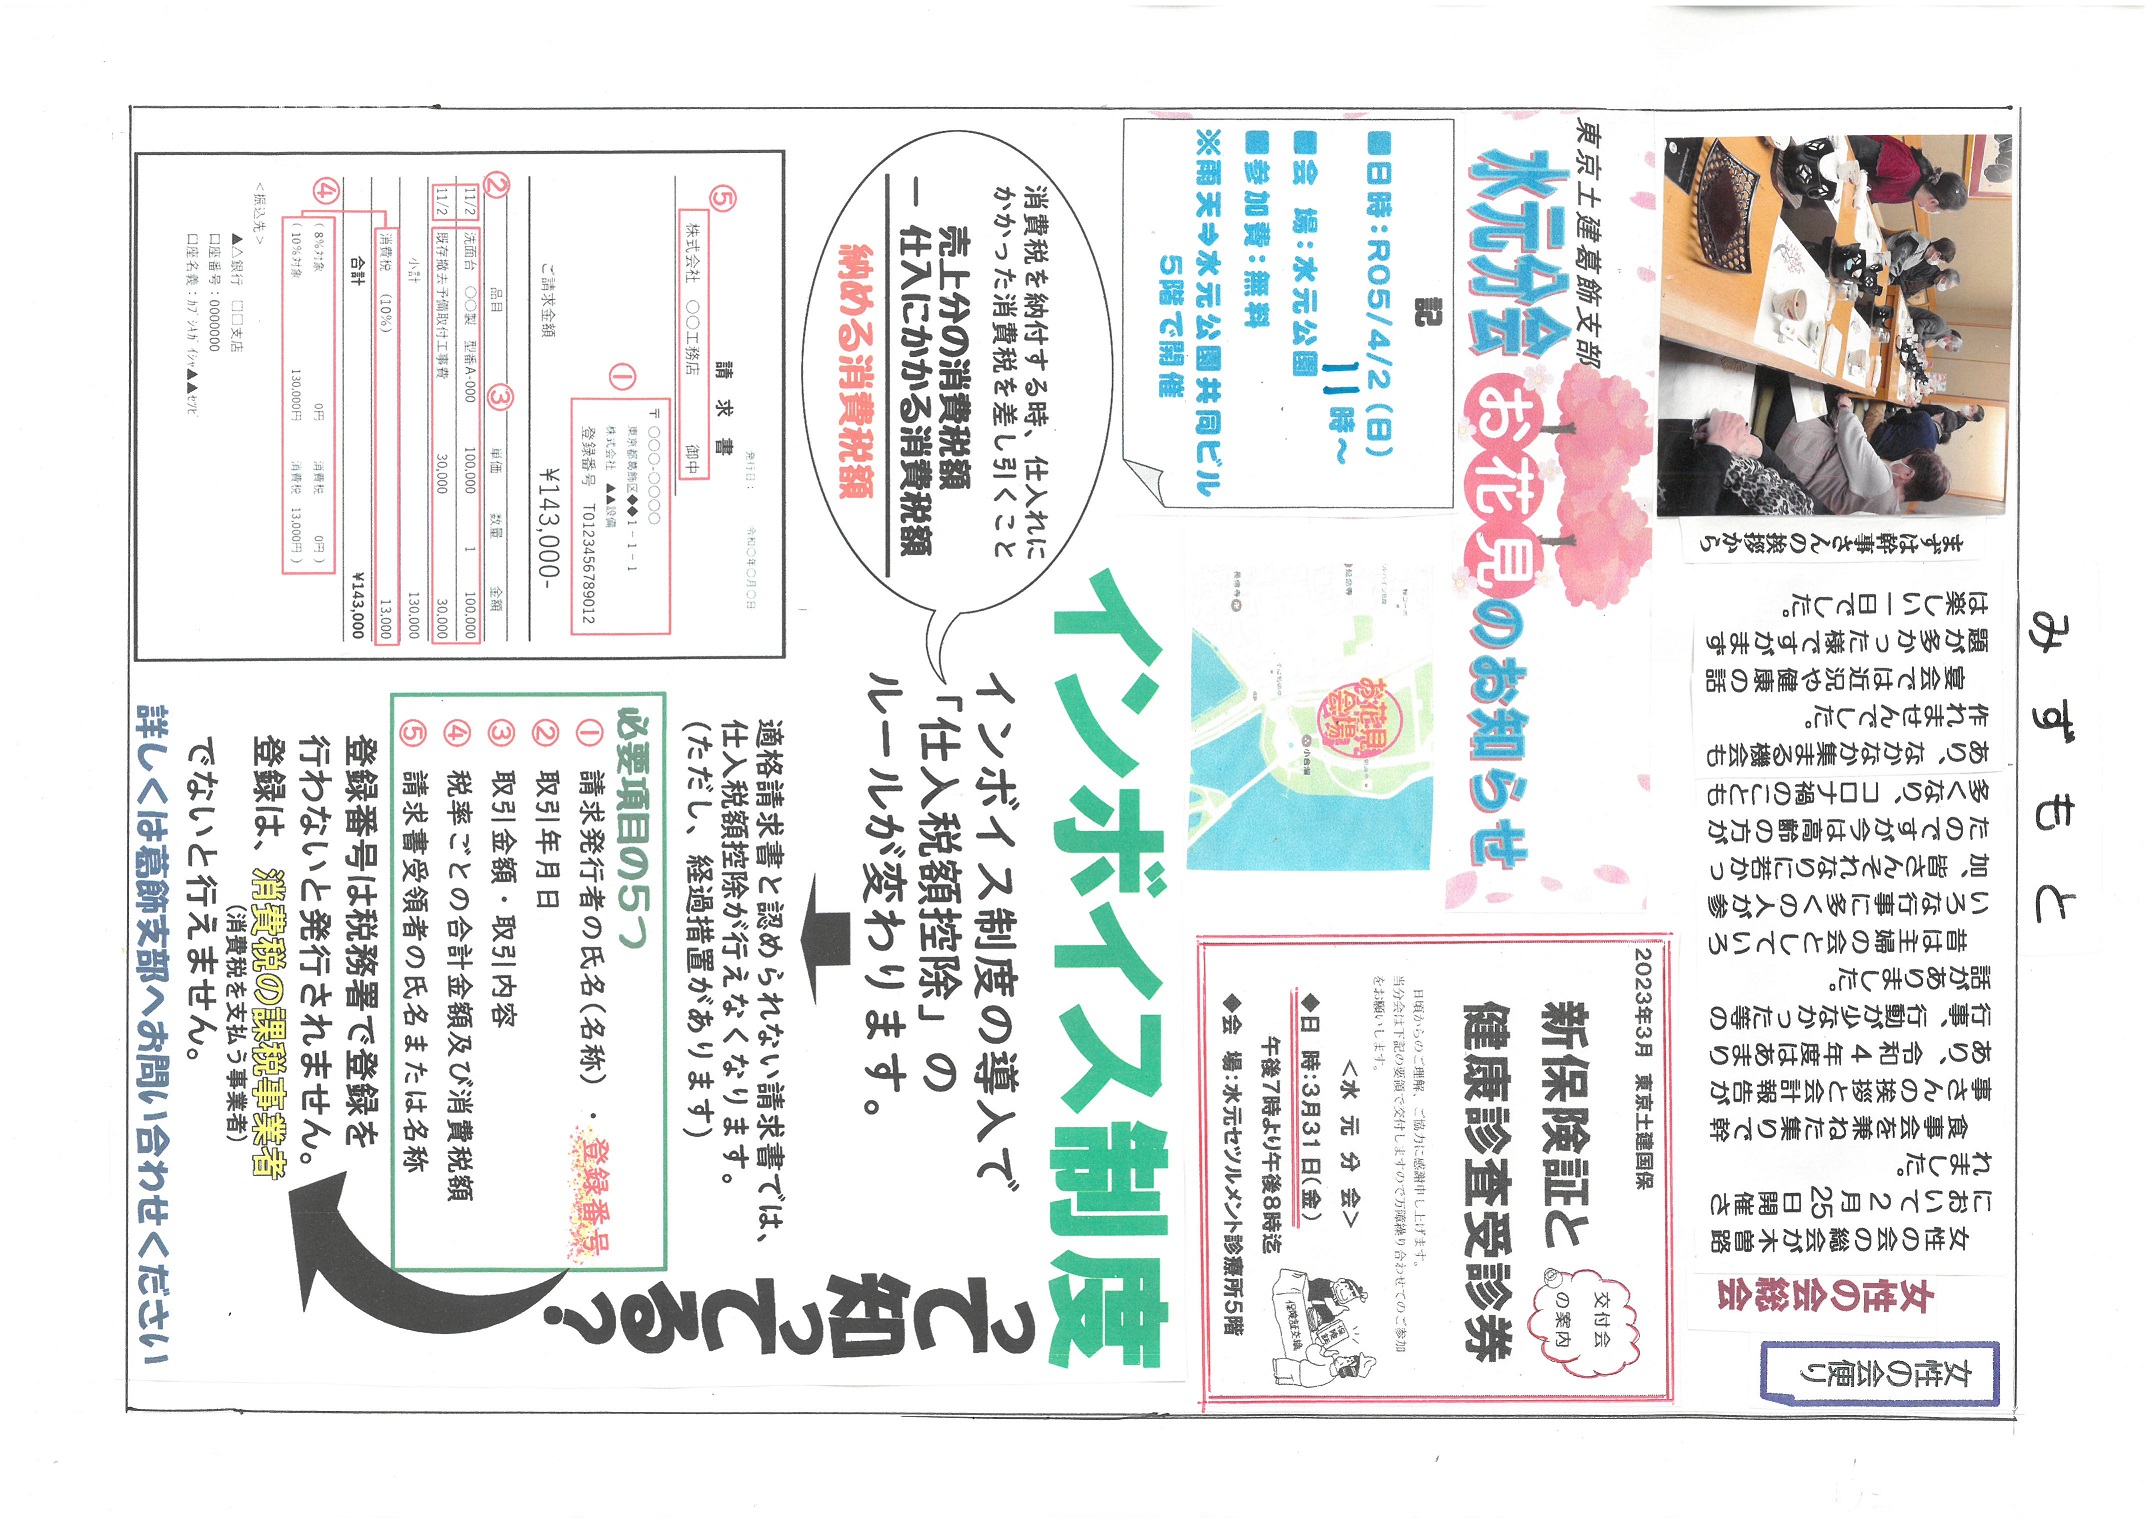 みずもと
女性の会便り
女性の会総会
女性の会の総会が木曽路
において２月25日開催さ
れました。
食事会を兼ねた集りで幹
事さんの挨拶と会計報告が
あり、令和４年度はあまり
行事、行動が少なかった等の
話がありました。
昔は主婦の会としていろ
いろな行事に多くの人が参
加、皆さんそれなりに若かっ
たのですが今は高齢の方が
多くなり、コロナ禍のことも
あり、なかなか集まる機会も
作れませんでした。
宴会では近況や健康の話
題が多かった様ですがまず
は楽しい一日でした。
まずは幹事さんの挨拶から
東京土建葛飾支部
水元分会お花見のお知らせ
記
■日時：R05/4/2（日）
11時～
■会　場：水元公園
■参加費：無料
※雨天→水元公園共同ビル
５階で開催
お花見
会場
小合溜
2023年3月 東京土建国保
新保険証と
健康診査受診券
交付会
の案内
日頃からのご理解、ご協力に感謝申し上げます。
当分会は下記の要領で交付しますので万障繰り合わせてのご参加
をお願いします。
＜水 元 分 会＞
◆日 時：3月31日(金)
午後7時より午後8時迄
◆会 場：水元セツルメント診療所5階
保険証交換
インボイス制度
って知ってる？
消費税を納付する時、仕入れに
かかった消費税を差し引くこと
売上分の消費税額
－ 仕入にかかる消費税額
納める消費税額
インボイス制度の導入で
「仕入税額控除」の
ルールが変わります。
適格請求書と認められない請求書では、
仕入税額控除が行えなくなります。
（ただし、経過措置があります）
必要項目の5つ
① 請求発行者の氏名(名称)・登録番号
② 取引年月日
③ 取引金額・取引内容
④ 税率ごとの合計金額及び消費税額
⑤ 請求書受領者の氏名または名称
登録番号は税務署で登録を
行わないと発行されません。
登録は、消費税の課税事業者
（消費税を支払う事業者）
でないと行えません。
詳しくは葛飾支部へお問い合わせください
発行日：　令和〇年〇月〇日
請 求 書
⑤
株式会社　〇〇工務店　御中
①
〒〇〇〇-〇〇〇〇
東京都葛飾区◆◆1-1-1
株式会社　▲▲設備
登録番号　T0123456789012
ご請求金額　¥143,000-
② 品目 ③ 単価 数量 金額
11/2 洗面台　〇〇製　型番A-000 100,000 1 100,000
11/2 既存撤去予備取付工事費 30,000 30,000
小計 130,000
④ 消費税　(10%) 13,000
合計 ¥143,000
（8%対象 0円 消費税 0円）
（10%対象 130,000円 消費税 13,000円）
＜振込先＞
▲△銀行　□□支店
口座番号：0000000
口座名義：ｶﾌﾞｼｷｶﾞｲｼｬ▲▲ｾﾂﾋﾞ